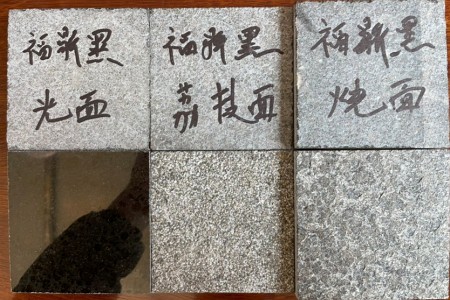 福新黑
光面
福新黑
荔枝面
福新黑
烧面